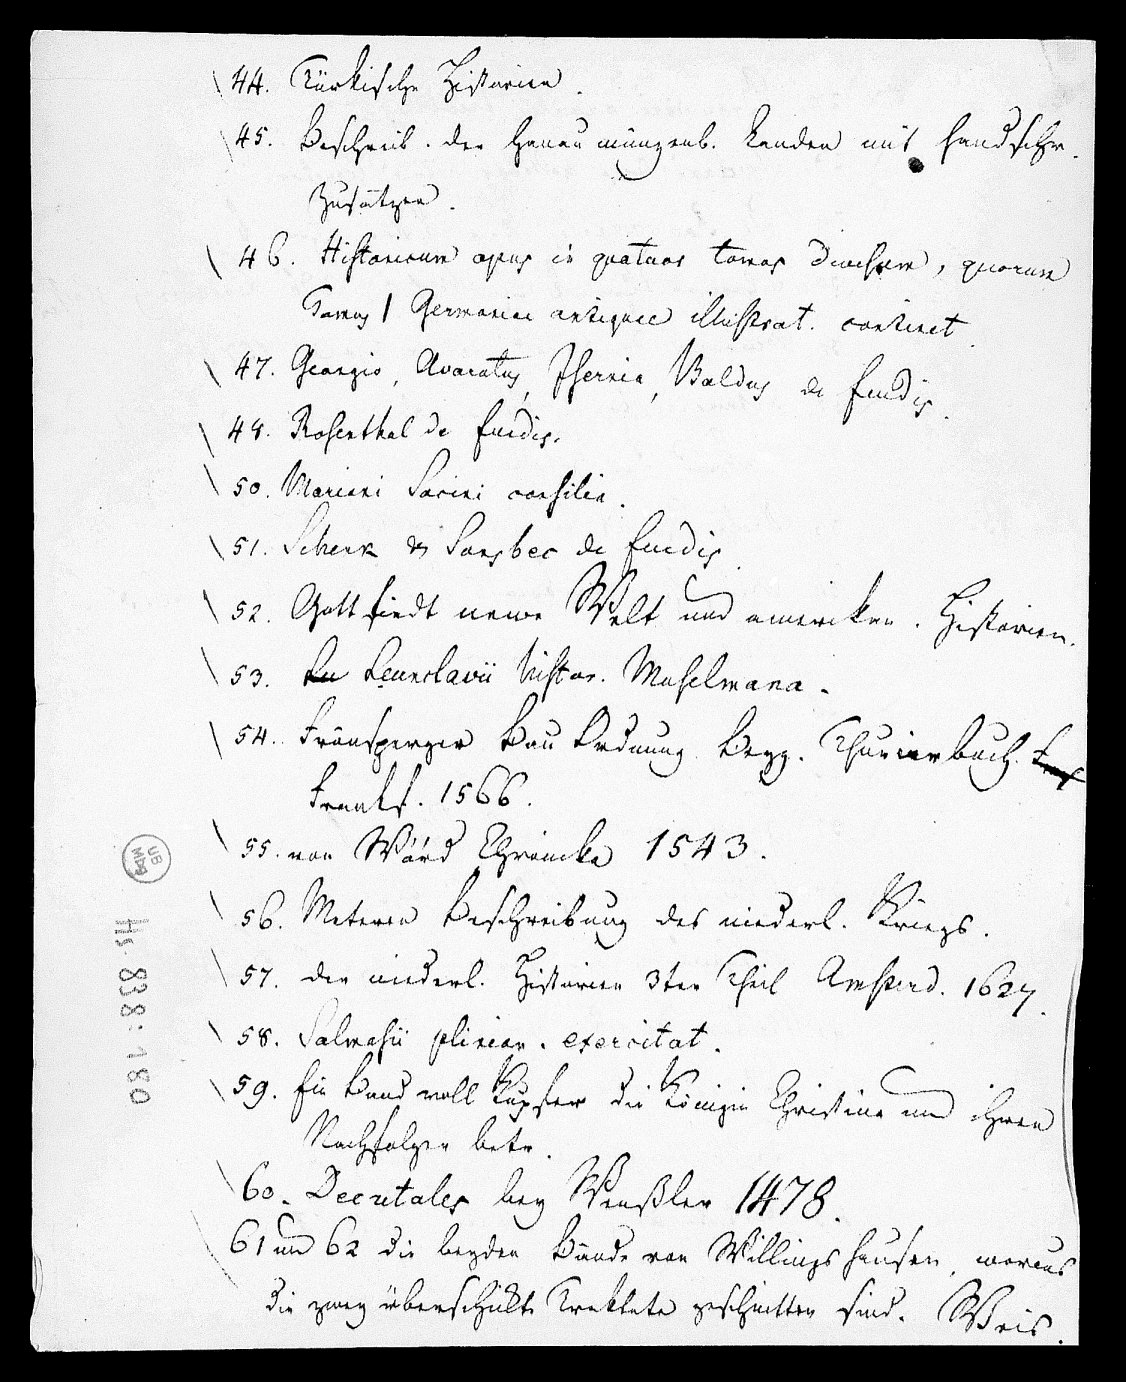 44. Türkische Historien.
45. Beschreib. der Hanau münzenb. Landen mit handschr.
Zusätzen.
46. Historicum opus in quatuor tomos divisum, quorum
Tomus I Germaniae antiquae illustrat. continet.
47. Georgio, Avaratus, Isernia, Baldus de feudis.
48. Rosenthal de feudis.
50. Mariani Socini consilia.
51. Schenk & Sonsbec de feudis
52. Gottfriedt newe Welt und amerikan. Historien.
53. Leunclavii histor. Muselmana.
54. Frönsperger Bau Ordnung. Beyg. Thurierbuch.
Frankf. 1566.
55. von Wörd Chronicka 1543.
56. Meteren Beschreibung des niederl. Kriegs.
57. der niederl. Historien 3ter Theil Amsterd. 1627.
58. Salmasii plinian. exercitat.
59. Ein Band voll Kupfer die Königin Christina und ihren
Nachfolger betr.
60. Decretales bey Wenßler 1478.
61 und 62 die beyden Bände von Willingshausen, woraus
die zwey überschickte Traktate geschnitten sind. Weis.
UB
MBG
Hs. 838: 180